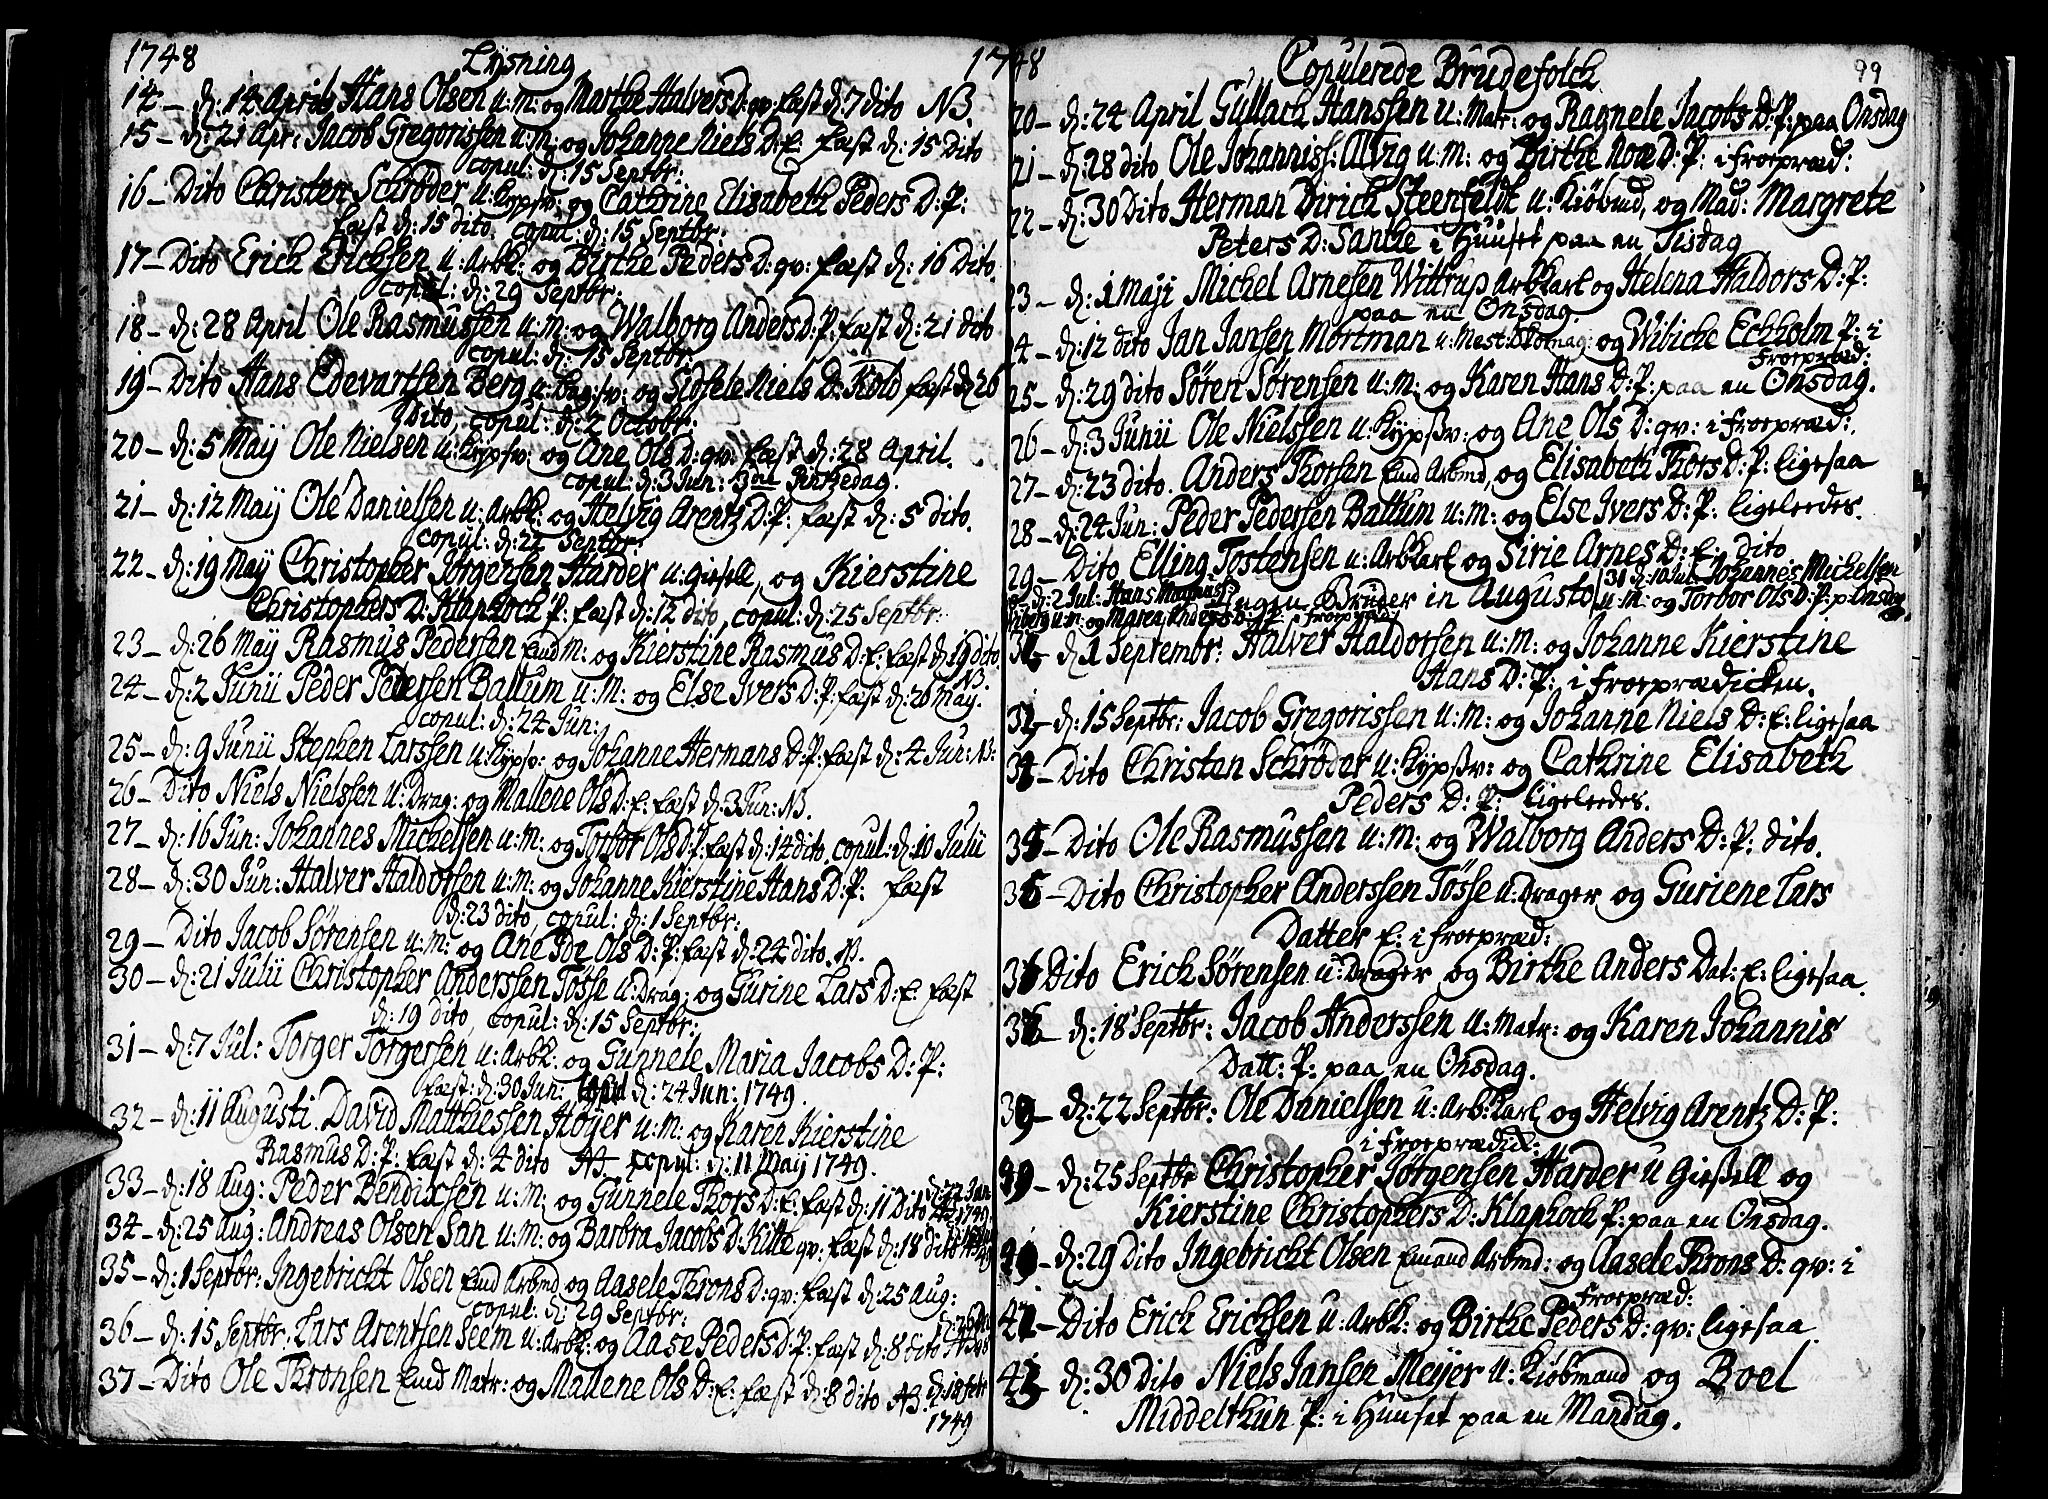 1748 Lÿsning
14 – d: 14 April Hans Olsen u: m: og Marthe Halvers D: qv: fæst d: 7 dito NB.
15 – d: 21 Apr: Jacob Gregorissen u: m: og Johanne Niels D: E: fæst d: 15 Dito
copul: d: 15 Septbr:
16 – Dito Christen Schrøder u: Kypsv: og Cathrine Elisabeth Peders D: P:
fæst d: 15 dito, copul: d: 15 Septbr:
17 – Dito Erich Erichsen u: Arbk: og Birthe Peders D: qv: fæst d: 16 Dito.
copul: d: 29 Septbr:
18 – d: 28 April Ole Rasmussen u: m: og Walborg Anders D: P: fæst d: 21 dito
copul: d: 15 Septbr:
19 – Dito Hans Edevartsen Berg u: Bag:sv: og Sidsele Niels D: Kold fæst d: 26
Dito, copul: d: 2 Octobr:
20 – d: 5 Maÿ Ole Nielsen u: Kypsv: og Ane Ols D: qv: fæst d: 28 April.
copul: d: 3 Jun: 3die Pintzedag.
21 – d: 12 Maÿ Ole Danielsen u: Arbk: og Helvig Arentz D: P: fæst d: 5 dito.
copul: d: 22 Septbr:
22 – d: 19 Maÿ Christopher Jørgensen Harder u: Giesell, og Kierstine
Christophers D: Klaphock P: fæst d: 12 dito, copul: d: 25 Septbr:
23 – d: 26 Maÿ Rasmus Pedersen Emd m: og Kierstine Rasmus D: E: fæst d: 19 dito
NB.
24 – d: 2 Junii Peder Pedersen Ballum u: m: og Else Ivers D: P: fæst d: 26 Maÿ.
copul: d: 24 Jun:
25 – d: 9 Junii Stephen Larssen u: Kypsv: og Johanne Hermans D: P: fæst d: 4 Jun: NB:
26 – Dito Niels Nielssen u: Drag: og Mallene Ols D: E: fæst d: 3 Jun: NB.
27 – d: 16 Jun: Johannes Michelsen u: m: og Torbor Ols D: P: fæst d: 14 dito, copul: d: 10 Julii
28 – d: 30 Jun: Halver Haldorsen u: m: og Johanne Kierstine Hans D: P: fæst
d: 23 dito, copul: d: 1 Septbr:
29 – Dito Jacob Sørensen u: m: og Ane Ide Ols D: P: fæst d: 24 dito. NB.
30 – d: 21 Julii Christopher Anderssen Tøsse u: Drag: og Gurine Lars D: E: fæst
d: 19 dito, copul: d: 15 Septbr:
31 – d: 7 Jul: Torger Torgersen u: Arbk: og Gunnele Maria Jacobs D: P:
fæst: d: 30 Jun: copul d: 24 Jun: 1749.
32 – d: 11 Augusti David Matthessen Høyer u: m: og Karen Kierstine
Rasmus D: P: fæst d: 4 dito NB. copul: d: 11 Maÿ 1749.
33 – d: 18 Aug: Peder Bendixsen u: m: og Gunnele Thors D: E: fæst d: 11 Dito
34 – d: 25 Aug: Andreas Olsen San u: m: og Barbra Jacobs D: Kitte qv: fæst d: 18 dito
35 – d: 1 Septbr: Ingebricht Olsen Emd Arbmd og Aasele Throns D: qv: fæst d: 25 Aug:
copul: d: 29 Septbr:
36 – d: 15 Septbr: Lars Arentsen Seem u: Arbk: og Aase Peders D: P: fæst d: 8 dito
37 – Dito Ole Thronsen Emd Matr: og Mallene Ols D: E: fæst d: 8 dito NB. d: 18 febr
1749
1748 Copulerede Brudefolck 99
20 – d: 24 April Gullach Hanssen u: Matr: og Ragnele Jacobs D: P: paa Onsdag
21 – d: 28 dito Ole Johanniss: Alvig u: m: og Birthe Noæ D: P: i froepræd:
22 – d: 30 Dito Herman Dirich Steenfeldt u: Kiøbmd, og Mad: Margrete
Peters D: Santze i Huuset paa en Tisdag
23 – d: 1 Maji Michel Arnesen Wittrup Arbkarl og Helena Haldors D: P:
paa en Onsdag.
24 – d: 12 dito Jan Jansen Mortman u: Mest: Skomag: og Wibicke Eckholm P: i
Froepræd:
25 – d: 29 dito Søren Sørensen u: m: og Karen Hans D: P: paa en Onsdag.
26 – d: 3 Junii Ole Nielssen u: Kypsv: og Ane Ols D: qv: i froepræd:
27 – d: 23 dito. Anders Thorsen Emd Arbmd, og Elisabeth Thors D: P: ligesaa
28 – d: 24 Jun: Peder Pedersen Ballum u: m: og Else Ivers D: P: ligeledes.
29 – Dito Elling Tostensen u: Arbkarl og Sirie Arnes D: E: dito
d: 2 Jul: Hans Ingen Bruger in Augusto 31 d: 10 Jul: Johannes Michelsen
u: m: og Maren Anders D: i froepræd: u: m: og Torbor Ols D: P: p: Onsdag
d: 1 Septembr: Halver Haldorsen u: m: og Johanne Kierstine
Hans D: P: i froeprædicken.
d: 15 Septbr: Jacob Gregorissen u: m: og Johanne Niels D: E: ligesaa
Dito Christen Schrøder u: Kypsv: og Cathrine Elisabeth
Peders D: P: ligeledes.
35 – Dito Ole Rasmussen u: m: og Walborg Anders D: P: dito.
36 – Dito Christopher Anderssen Tøsse u: Drager og Guriene Lars
Datter E: i froepræd:
Dito Erich Sørensen u: Drager og Birthe Anders Dat: E: ligesaa.
d: 18 Septbr: Jacob Anderssen u: Matr: og Karen Johannis
Datt: P: paa en Onsdag.
39 – d: 22 Septbr: Ole Danielsen u: Arb:karl og Helvig Arentz D: P:
i froeprædik:
d: 25 Septbr Christopher Jørgensen Harder u Giesell og
Kierstine Christophers D: Klaphock P: paa en Onsdag.
d: 29 Dito Ingebricht Olsen Emand Arbmd: og Aasele Throns D: qv: i
froepræd:
Dito Erich Erichsen u: Arbk: og Birthe Peders D: qv: ligesaa
d: 30 Dito Niels Jansen Meyer u: Kiøbmand og Boel
Middelthun P: i Huuset paa en Mandag.